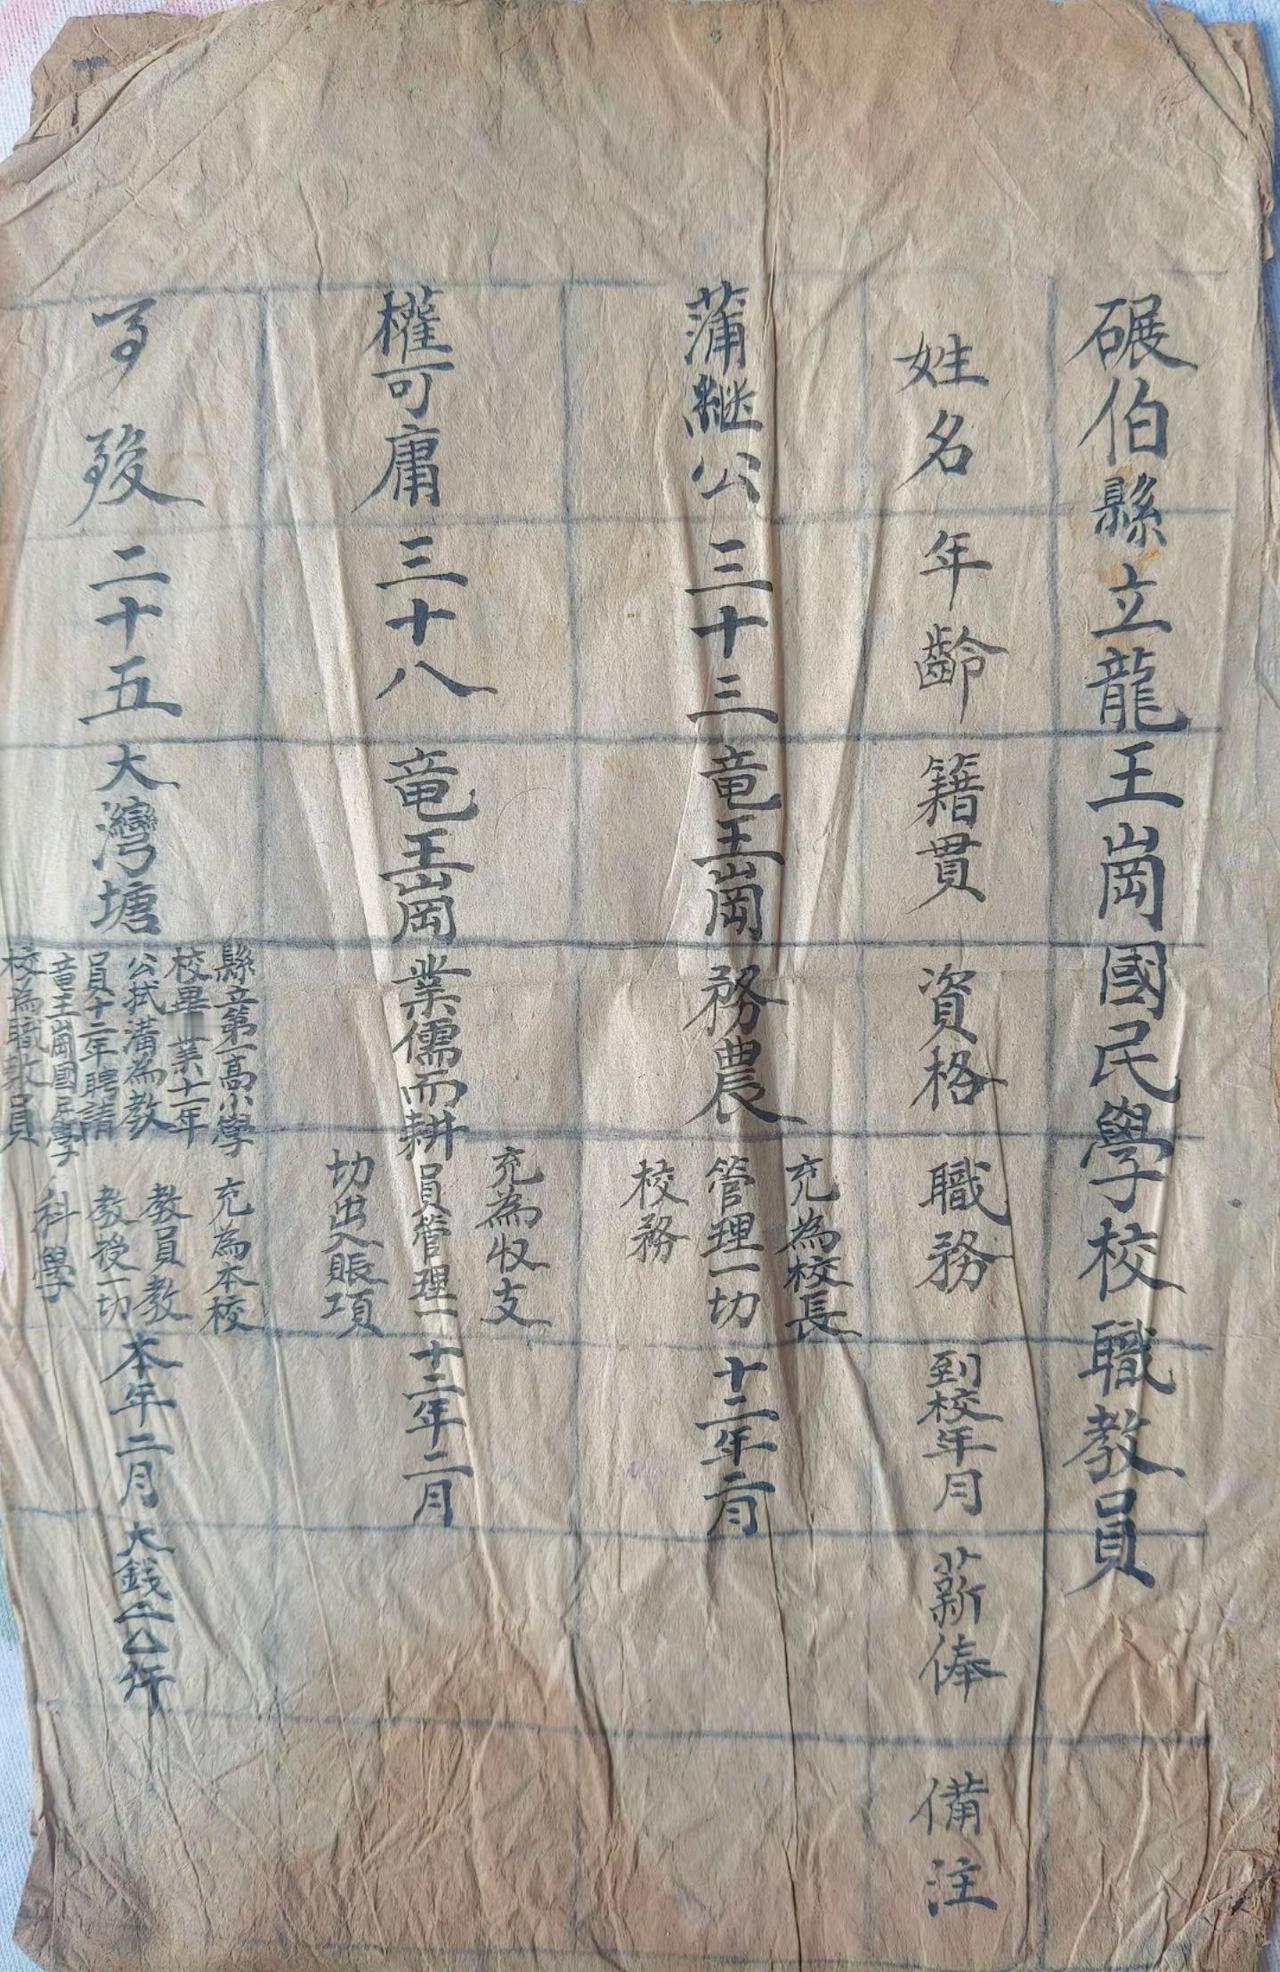 碾伯縣立龍王崗國民學校職教員
姓名
年齡
籍貫
資格
職務
到校年月
薪俸
備注
蒲繼公
三十三
竜王崗
務農
充為校長
管理一切
校務
十二年二月
權可庸
三十八
竜王崗
業儒而耕
充為收支
員管理一
切出入賬項
十二年二月
二十五
大灣塘
縣立第一高小學
校畢業十一年
公拭溝為教
員十二年聘請
竜王崗國民學
校為職教員
充為本校
教員教
教授一切
科學
本年二月
大錢